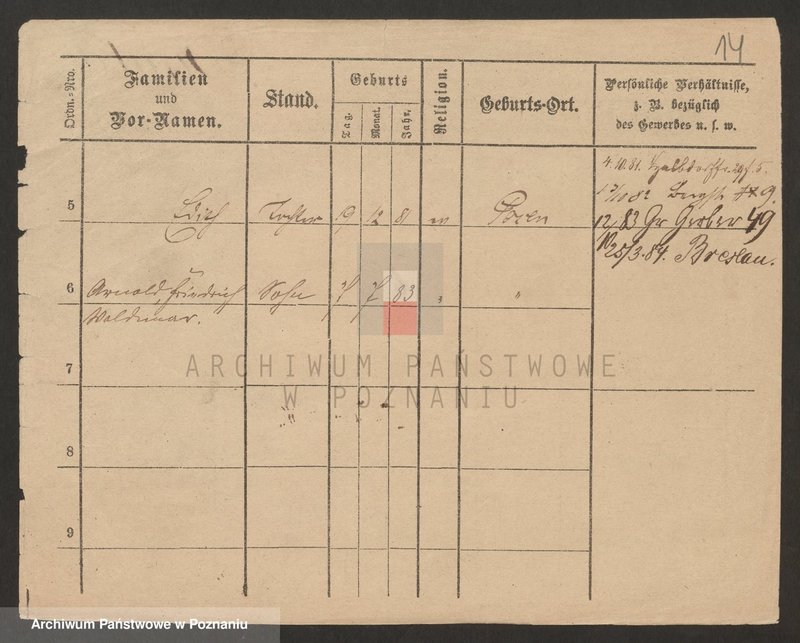 14
Ordn.-Nro.
Familien
und
Vor-Namen.
Stand.
Geburts
Tag.
Monat.
Jahr.
Religion.
Geburts-Ort.
Persönliche Verhältnisse,
z. B. bezüglich
des Gewerbes u. s. w.
4.10.81.
5 Edith Tochter 19 12 81 ev Posen
12/83 Gr Gerber 49
10
25/3.84. Breslau.
6 Arnold, Friedrich Sohn 7 7 83 " "
Waldemar.
7
8
9
ARCHIWUM PAŃSTWOWE
W POZNANIU
Archiwum Państwowe w Poznaniu